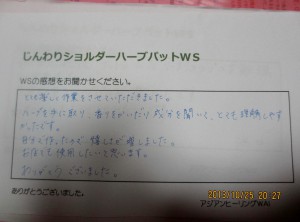 じんわりショルダーハーブパットWS
WSの感想をお聞かせください。
とても楽しく作業をさせていただきました。
ハーブを手に取り、香りをかいだり、成分を聞いて、とても理解しやす
かったです。
自分で作ったので 嬉しさが増しました。
お家でも使用したいと思います。
ありがとうございました。
ありがとうございました。
アジアンヒーリングWAI
2013/10/25 20:27